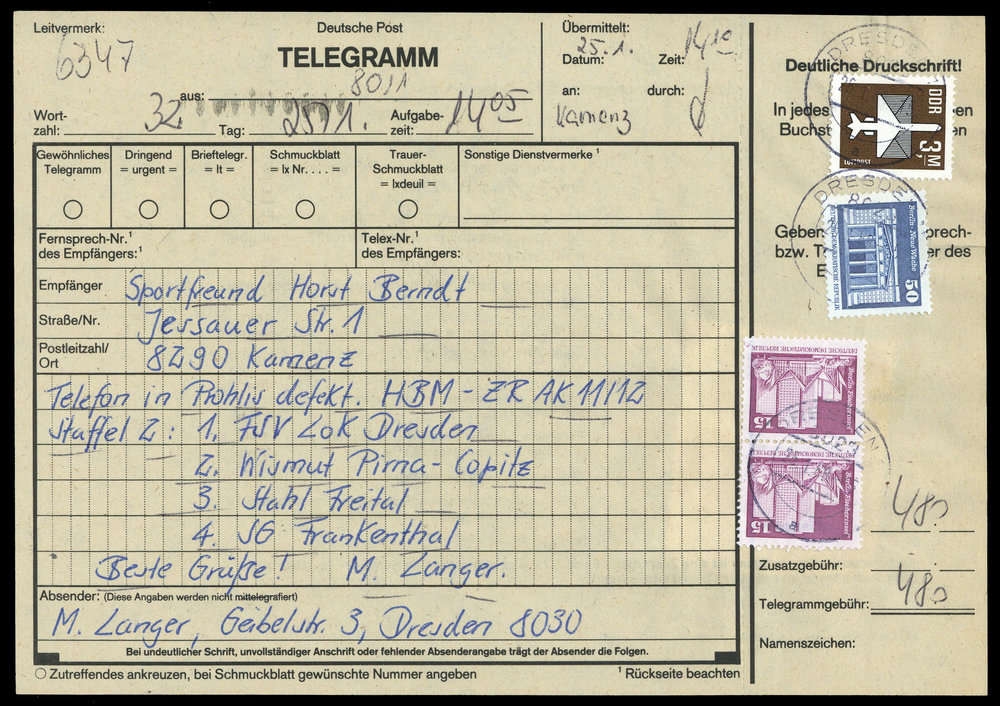 Leitvermerk:
6347
Deutsche Post
TELEGRAMM
aus: 8011
Wort-
zahl: 32
Tag: 25/1.
Aufgabe-
zeit: 14 05
Übermittelt:
25.1. 14 10
Datum: Zeit:
an: durch:
Kamenz
Deutliche Druckschrift!
In jedes en
Buchst en
Geben prech-
bzw. T er des
E
Gewöhnliches
Telegramm
Dringend
= urgent =
Brieftelegr.
= lt =
Schmuckblatt
= lx Nr. . . . . =
Trauer-
Schmuckblatt
= lxdeuil =
Sonstige Dienstvermerke ¹
Fernsprech-Nr.¹
des Empfängers:
Telex-Nr.¹
des Empfängers:
Empfänger Sportfreund Horst Berndt
Straße/Nr. Jessauer Str. 1
Postleitzahl/
Ort 8290 Kamenz
Telefon in Prohlis defekt. HBM - ZR AK 11/12
Staffel 2: 1. FSV Lok Dresden
2. Wismut Pirna-Copitz
3. Stahl Freital
4. SG Frankenthal
Beste Grüße! M. Langer.
Absender: (Diese Angaben werden nicht mittelegrafiert)
M. Langer, Geibelstr. 3, Dresden 8030
Bei undeutlicher Schrift, unvollständiger Anschrift oder fehlender Absenderangabe trägt der Absender die Folgen.
○ Zutreffendes ankreuzen, bei Schmuckblatt gewünschte Nummer angeben
¹ Rückseite beachten
DRESDEN
DDR
3,- M
DRESDEN
80
Berlin, Neue Wache
DEUTSCHE DEMOKRATISCHE REPUBLIK
50
DEUTSCHE DEMOKRATISCHE REPUBLIK
Berlin, Fischerinsel
15
DRESDEN
8027
a
DEUTSCHE DEMOKRATISCHE REPUBLIK
Berlin, Fischerinsel
15
480
Zusatzgebühr:
480
Telegrammgebühr:
Namenszeichen: